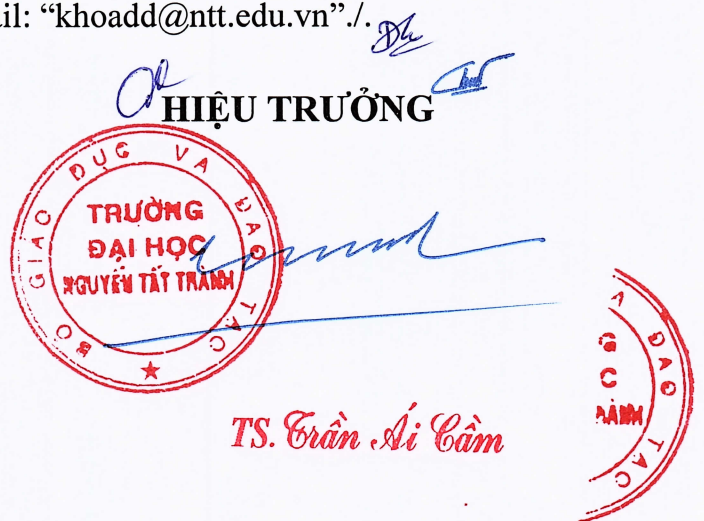 ail: “khoadd@ntt.edu.vn”./.
HIỆU TRƯỞNG
BỘ GIÁO DỤC VÀ ĐÀO TẠO
TRƯỜNG
ĐẠI HỌC
NGUYỄN TẤT THÀNH
TS. Trần Ái Cầm
ĐÀO TẠO